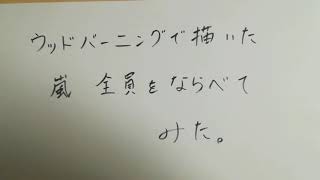 ウッドバーニングで描いた
嵐 全員をならべて
みた。